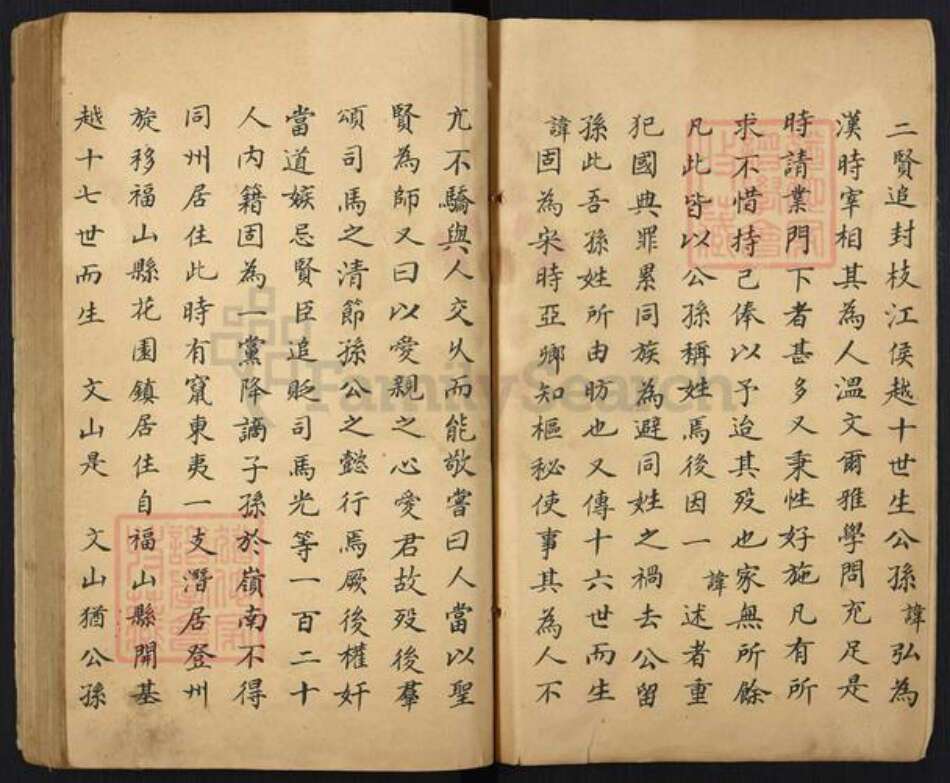 二賢追封枝江侯越十世生公孫諱弘為
漢時宰相其為人溫文爾雅學問充足是
時請業門下者甚多又秉性好施凡有所
求不惜持己俸以予迨其歿也家無所餘
凡此皆以公孫稱姓焉後因一諱述者重
犯國典罪累同族為避同姓之禍去公留
孫此吾孫姓所由昉也又傳十六世而生
諱固為宋時亞卿知樞秘使事其為人不
亢不驕與人交久而能敬嘗曰人當以聖
賢為師又曰以愛親之心愛君故歿後羣
頌司馬之清節孫公之懿行焉厥後權奸
當道嫉忌賢臣追貶司馬光等一百二十
人內籍固為一黨降謫子孫於嶺南不得
同州居住此時有竄東夷一支潛居登州
旋移福山縣花園鎮居住自福山縣開基
越十七世而生 文山是 文山猶公孫
FamilySearch